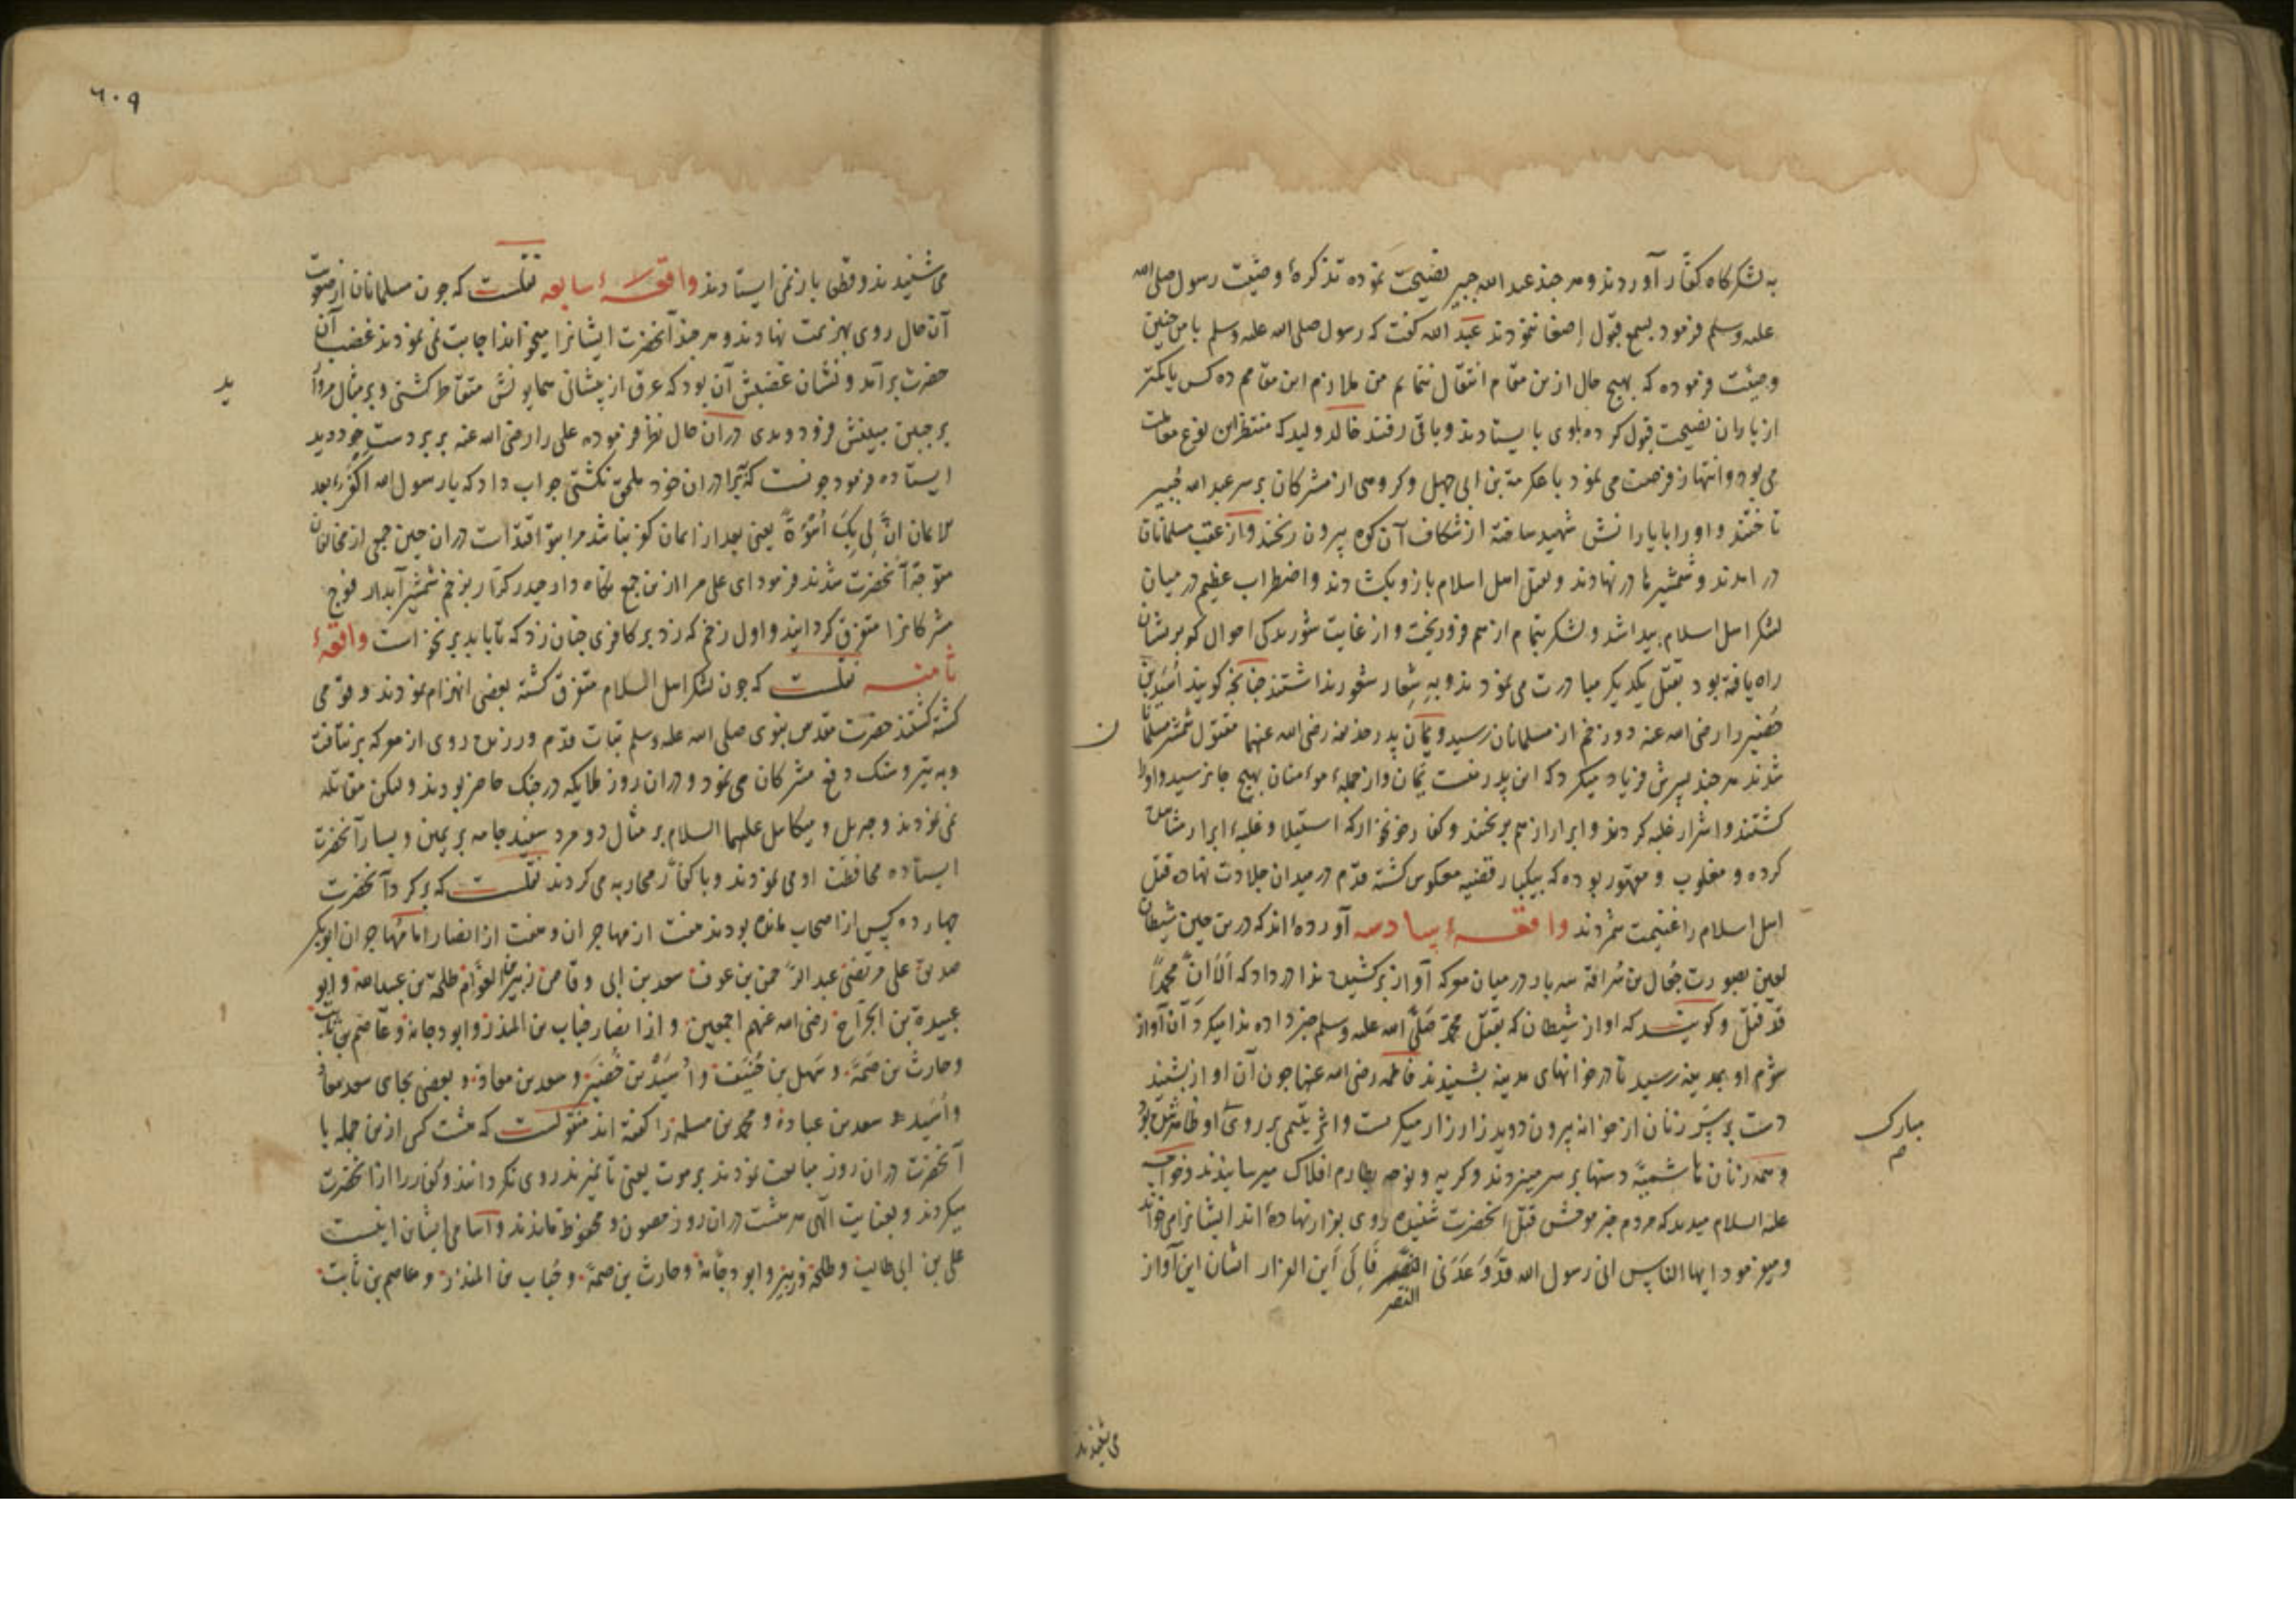 به لشکرکاه کفّار آوردند و هر چند عبد الله جبیر نصیحت نموده تذکرهٔ وصیّت رسول صلی الله
علیه وسلم فرمود بسمع قبول اصغا ننمودند عبد الله کفت که رسول صلی الله علیه وسلم با من چنین
وصیّت فرموده که بهیچ حال ازین مقام انتقال ننمایم من ملازم این مقامم ده کس یا کمتر
از یاران نصیحت قبول کرده با وی بایستادند و باقی رفتند خالد ولید که منتظر این نوع
می بود و انتهاز فرصت می نمود با عکرمة بن ابی جهل و کروهی از مشرکان بر سر عبد الله جُبیر
تاختند و او را با یارانش شهید ساخته از شکاف آن کوه بیرون ریختند و از عقب مسلمانان
در امدند و شمشیرها در نهادند و بقتل اهل اسلام بازو بکشادند و اضطراب عظیم در میان
لشکر اهل اسلام پیدا شد و لشکر بتمام از هم فرو ریخت و از غایت شوریدکی احوال کو بریشان
راه یافته بود بقتل یکدیکر مبادرت می نمودند و به شِعار شعور نداشتند چنانچه کویند اُسَید بن
حُضَیر را رضی الله عنه دو زخم از مسلمانان رسید و یَمان پدر حذیفه رضی الله عنهما مقتول شمشیر مسلمانان
شدند هر چند پسرش فریاد میکرد که این پدر منست یَمان و از جملهٔ مومنان بهیچ جا نرسید و او را
کشتند و اشرار غلبه کردند و ابرار از هم بریختند و کفار خونخوار که استیلا و غلبهٔ ابرار مشاهده
کرده و مغلوب و مقهور بوده که بیکبار قضیه معکوس کشته قدم در میدان جلادت نهاده قتل
اهل اسلام را غنیمت شمردند واقعهٔ سادسه آورده‌اند که درین حین شیطان
لعین بصورت جُعال بن سُراقه سه بار در میان معرکه آواز برکشیده ندا در داد که اَلَا انَّ محمدًا
قد قتل و کویند که اواز شیطان که بقتل محمد صَلّی الله علیه وسلم خبر داده ندا میکرد آن آواز
شوم او بمدینه رسید تا در خانهای مدینه بشنیدند فاطمه رضی الله عنها چون آن اواز بشنید
دست بر سر زنان از خانه بیرون دوید زار زار میکریست و اثر یتیمی بر روی او ظاهر شده بود
و همه زنان هاشمیّه دستها بر سر میزدند و کریه و نوحه بطارم افلاک میرسانیدند و خواجه
علیه السلام میدید که مردم خبر موحش قتل انحضرت شنیده روی بفرار نهاده‌اند ایشانرا می خواند
و میفرمود ایها الناس انی رسول الله قد وَعَدَنی النصر فَاِلَی اَین الفرار ایشان این آواز
النصر
مبارک
م
ن
می شنیدند
٦٠٩
می شنیدند و قطعا باز نمی ایستادند واقعهٔ سابعه نقلست که چون مسلمانان از صعوبت
آن حال روی بهزیمت نهادند و هر چند آنحضرت ایشانرا میخواند اجابت نمی نمودند غضب آن
حضرت بر آمد و نشان غضبش آن بود که عرق از پیشانی همایونش متقاطر کشتی و بر مثال مروارید
بر جبین مبینش فرو دویدی در ان حال نظر فرموده علی را رضی الله عنه بر بر دست خود دید
ایستاده فرمود چونست که ترا در ان خود ملحق نکشتی جواب داد که یا رسول الله اکفر بعد
الایمان انَّ لی بِکَ اُسْوَةً یعنی بعد از ایمان کفر نباشد مرا بتو اقتداست در ان حین جمعی از مخالفان
متوجه آنحضرت شدند فرمود ای علی مرا ازین جمع نکاه دار حیدر کرّار بزخم شمشیر آبدار فوج
مشرکانرا متفرق کردانید و اول زخم که زد بر کافری چنان زد که تا باید بر نخواست واقعهٔ
ثامنه نقلست که چون لشکر اهل اسلام متفرق کشته بعضی انهزام نمودند و قومی
کشته کشتند حضرت مقدس نبوی صلی الله علیه وسلم ثبات قدم ورزیده روی از معرکه بر نتافت
و به تیر و سنک دفع مشرکان می نمود و در ان روز ملایکه در جنک حاضر بودند و لیکن مقاتله
نمی نمودند و جبریل و میکاییل علیهما السلام بر مثال دو مرد سفید جامه بر یمین و یسار آنحضرت
ایستاده محافظت او می نمودند و با کفّار محاربه می کردند نقلست که بر کرد آنحضرت
چهارده کس از اصحاب مانده بودند هفت از مهاجران و هفت از انصار اما مُهاجران ابوبکر
صدیق علی مرتضی عبد الرّحمن بن عوف سعد بن ابی وقاص زبیر بن العوّام طلحة بن عبیدالله و ابو
عبیدة بن الجرّاح رضی الله عنهم اجمعین و از انصار حُباب بن المنذر و ابو دجانه و عاصم بن ثابت
و حارث بن صمّه و سهل بن حُنَیف و اُسَیْد بن حُضَیر و سعد بن معاذ و بعضی بجای سعد معاذ
و اُسَید سعد بن عباده و محمد بن مسلمه را کفته اند منقولست که هشت کس ازین جمله با
آنحضرت در ان روز مبایعت نمودند بر موت یعنی تا نمیرند روی نکردانند و کفار را از آنحضرت
میکردند و بعنایت الهی هر هشت در ان روز مصون و محفوظ ماندند و اسامی ایشان اینست
علی بن ابی طالب و طلحه و زبیر و ابو دجانه و حارث بن صمّه و حُباب بن المنذر و عاصم بن ثابت
ید